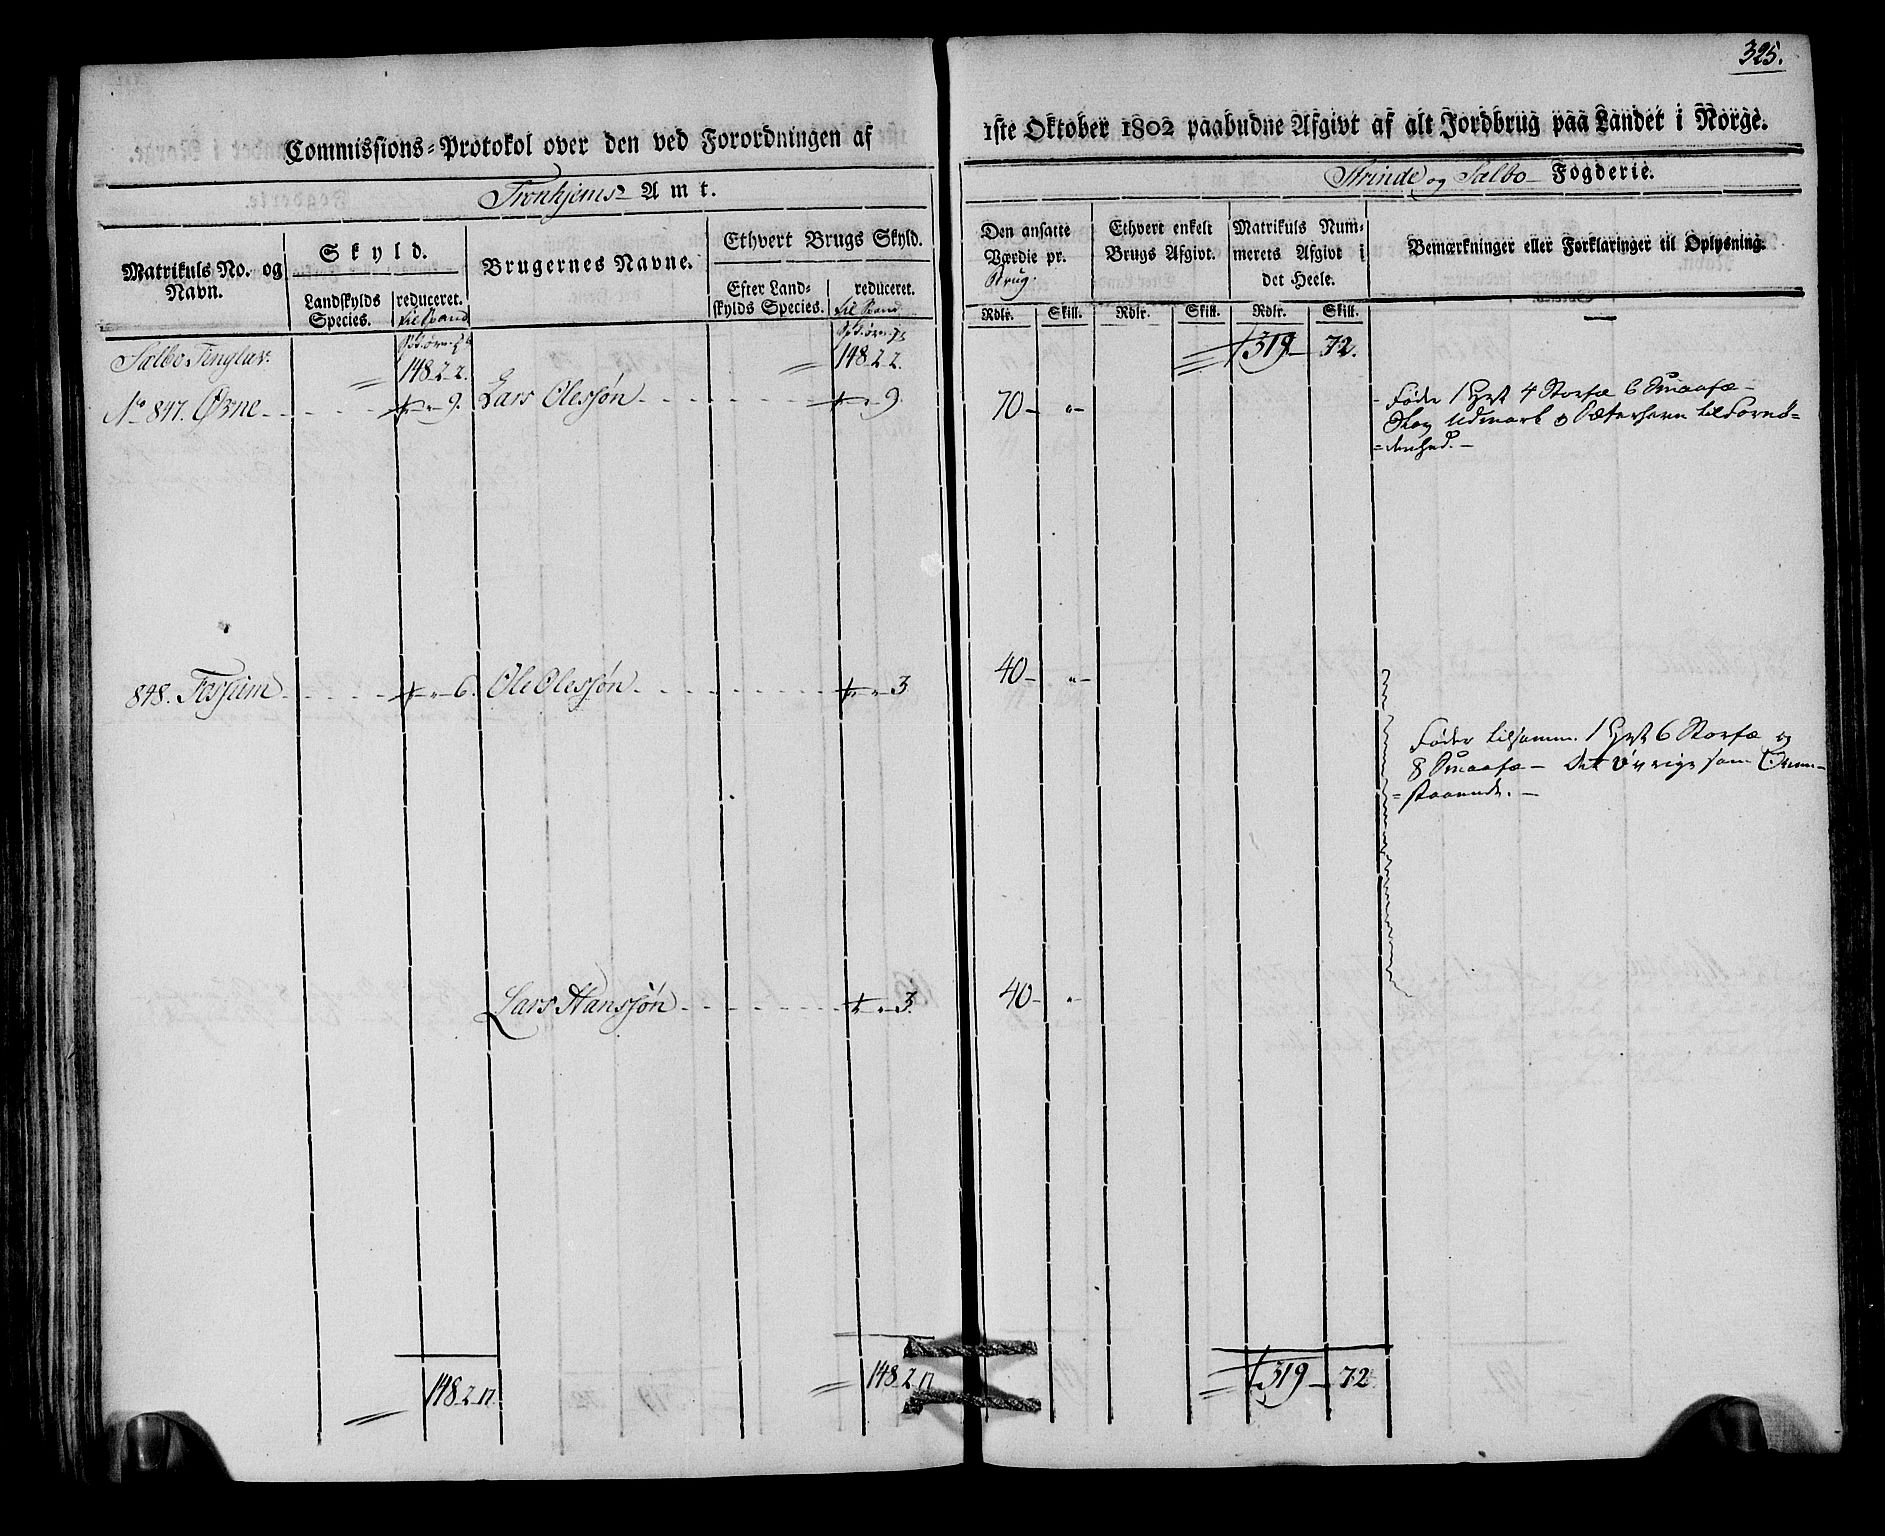 325.
Commissions-Protokol over den ved Forordningen af
1ste Oktober 1802 paabudne Afgivt af alt Jordbrug paa Landet i Norge.
Tronhjems Amt.
Strinde og Sælbo Fogderie.
Matrikuls No. og Navn.
Skyld.
Landskylds Species.
reduceret.
til Spand
Brugernes Navne.
Ethvert Brugs Skyld.
Efter Landskylds Species.
reduceret.
til Spand
Den ansatte Værdie pr. Brug.
Rdlr. Skill.
Ethvert enkelt Brugs Afgivt.
Rdlr. Skill.
Matrikuls Nummerets Afgivt i det Heele.
Rdlr. Skill.
Bemærkninger eller Forklaringer til Oplysning.
Sælbo Tinglav: 148 2 2. 148 2 2. 319 72.
No 847. Øvne 9. Lars Olessøn 9. 70 "
Føder 1 Hest 4 Storfæ 6 Smaafæ
Skov Udmark o Sæterhavn til Fornø-
=denhed.
848. Fossum 6. Ole Olessøn 3 40 "
Føder tilsamm. 1 Hest 6 Storfæ og
8 Smaafæ Det øvrige som Oven-
=staaende.
Lars Hanssøn 3. 40 "
148 2 11. 148 2 11 319 72.